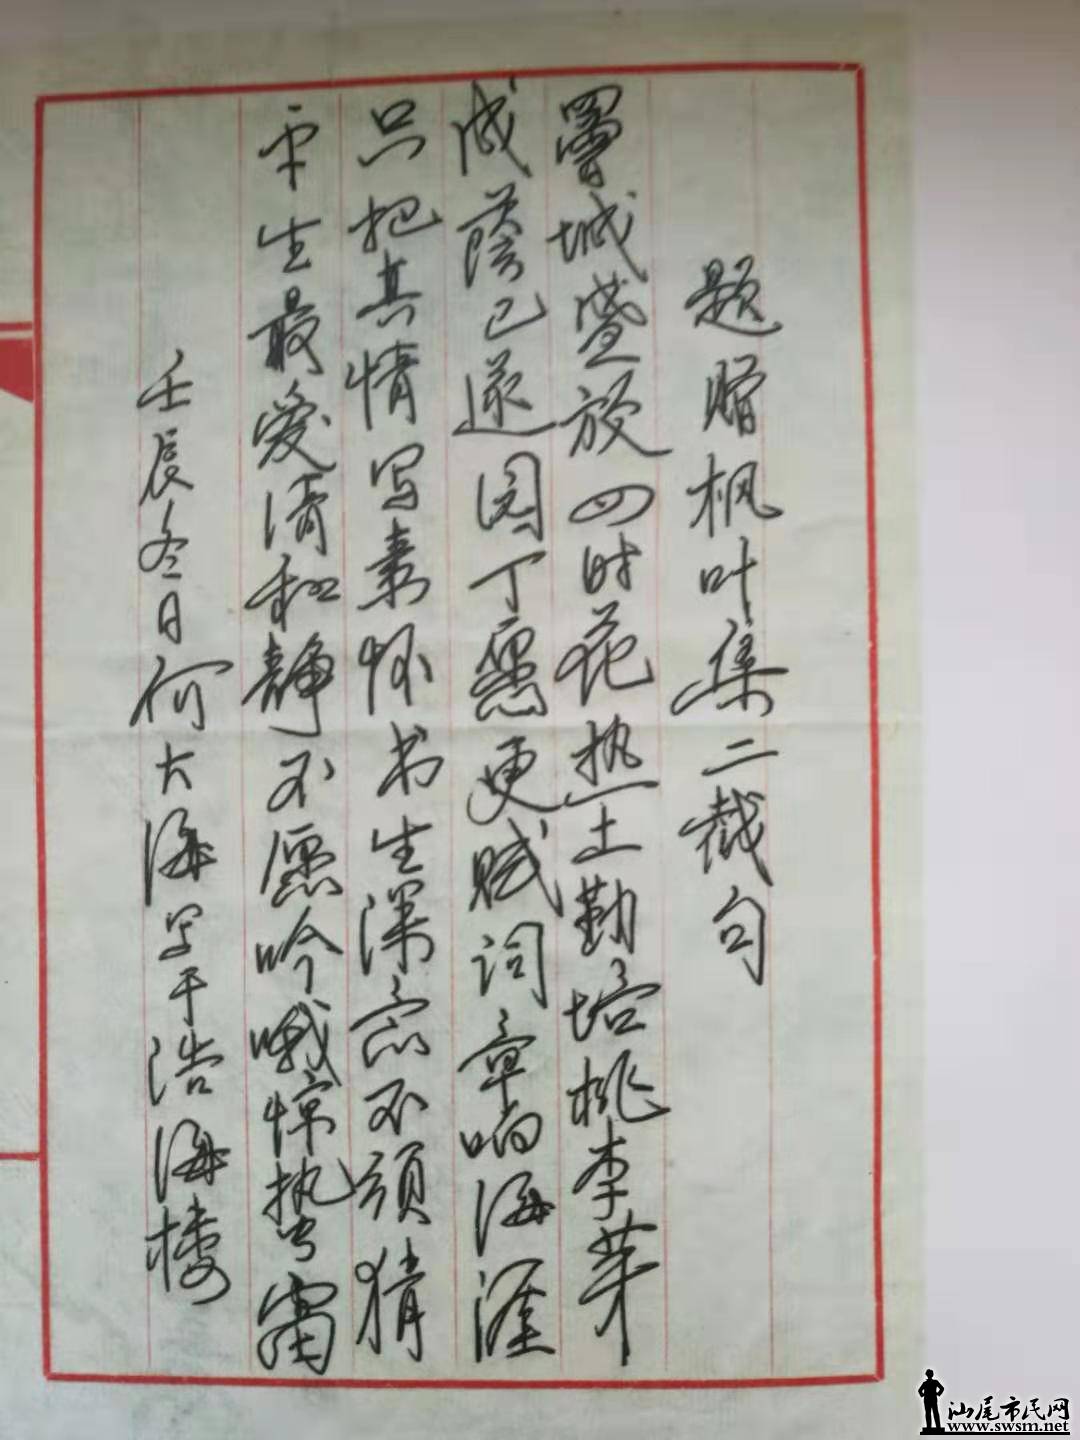 题赠枫叶集二截句
署城萱放四时花热土勤培桃李芽
成荫已遂园丁愿更赋词章响海涯
只把真情写素怀书生深意不须猜
平生最爱清和静不愿吟哦惊蛰雷
壬辰冬日何大海写于浩海楼
汕尾市民网
www.swsm.net